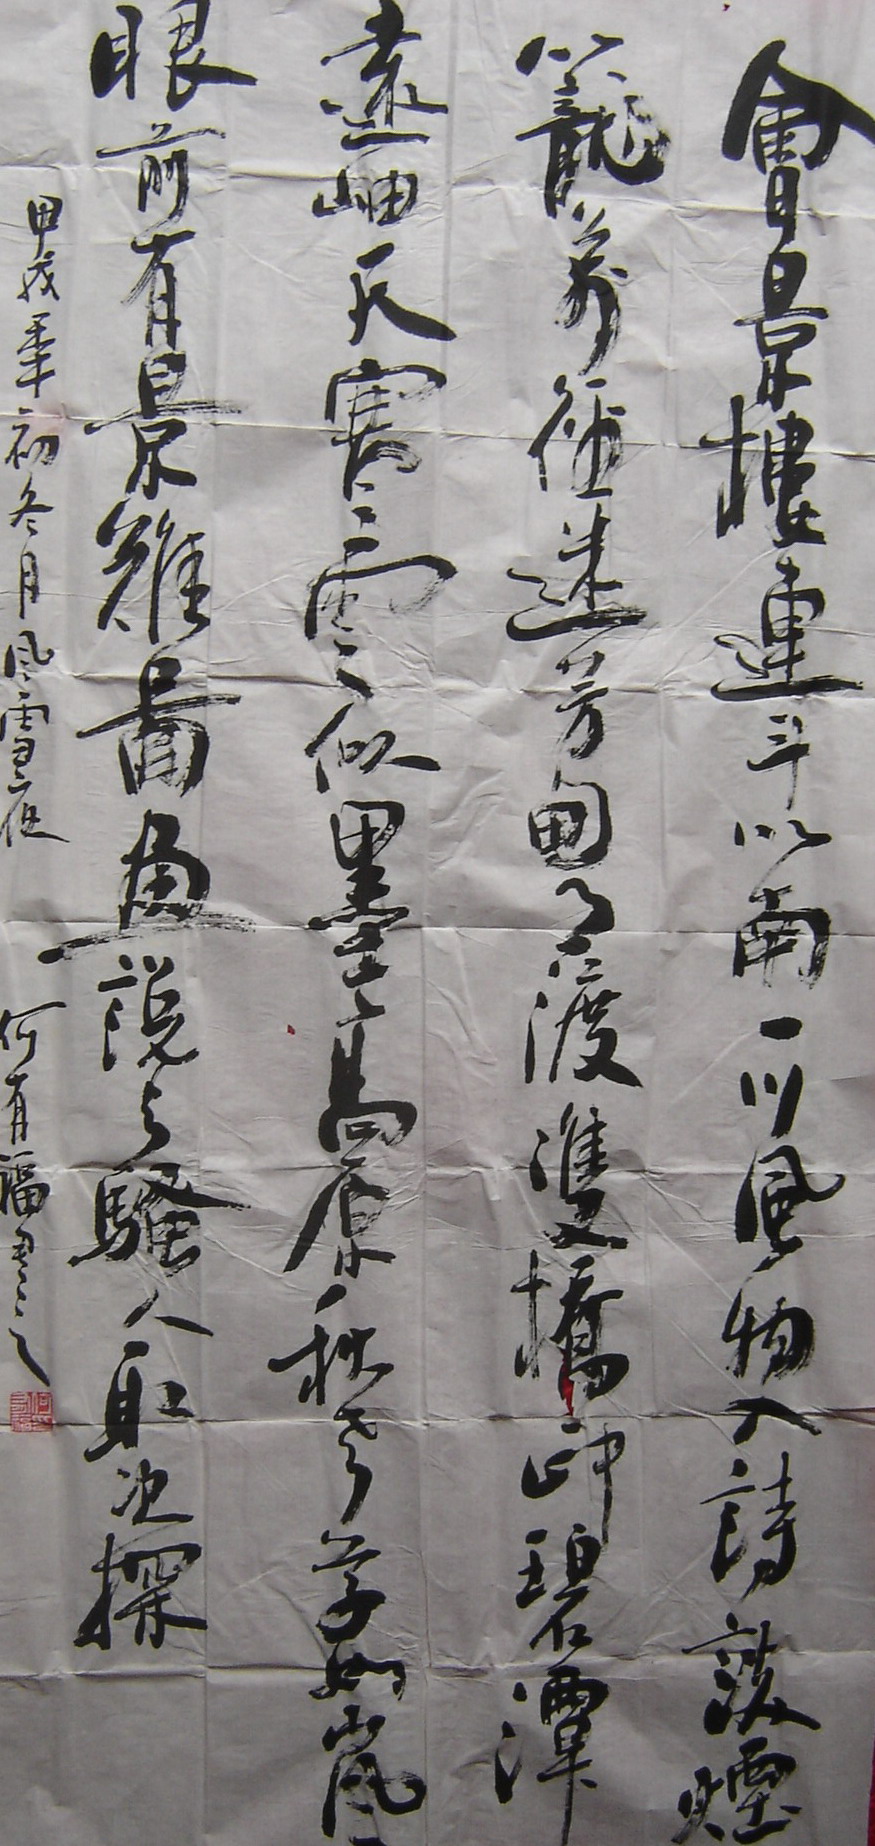 會景樓連斗以南一川風物入詩談煙
籠萬徑迷芳甸月渡雙橋印碧潭
遠岫天寒雲似墨高原秋老草如嵐
眼前有景難圖畫說與騷人取次探
甲戌年初冬月風雪夜 何有福書之